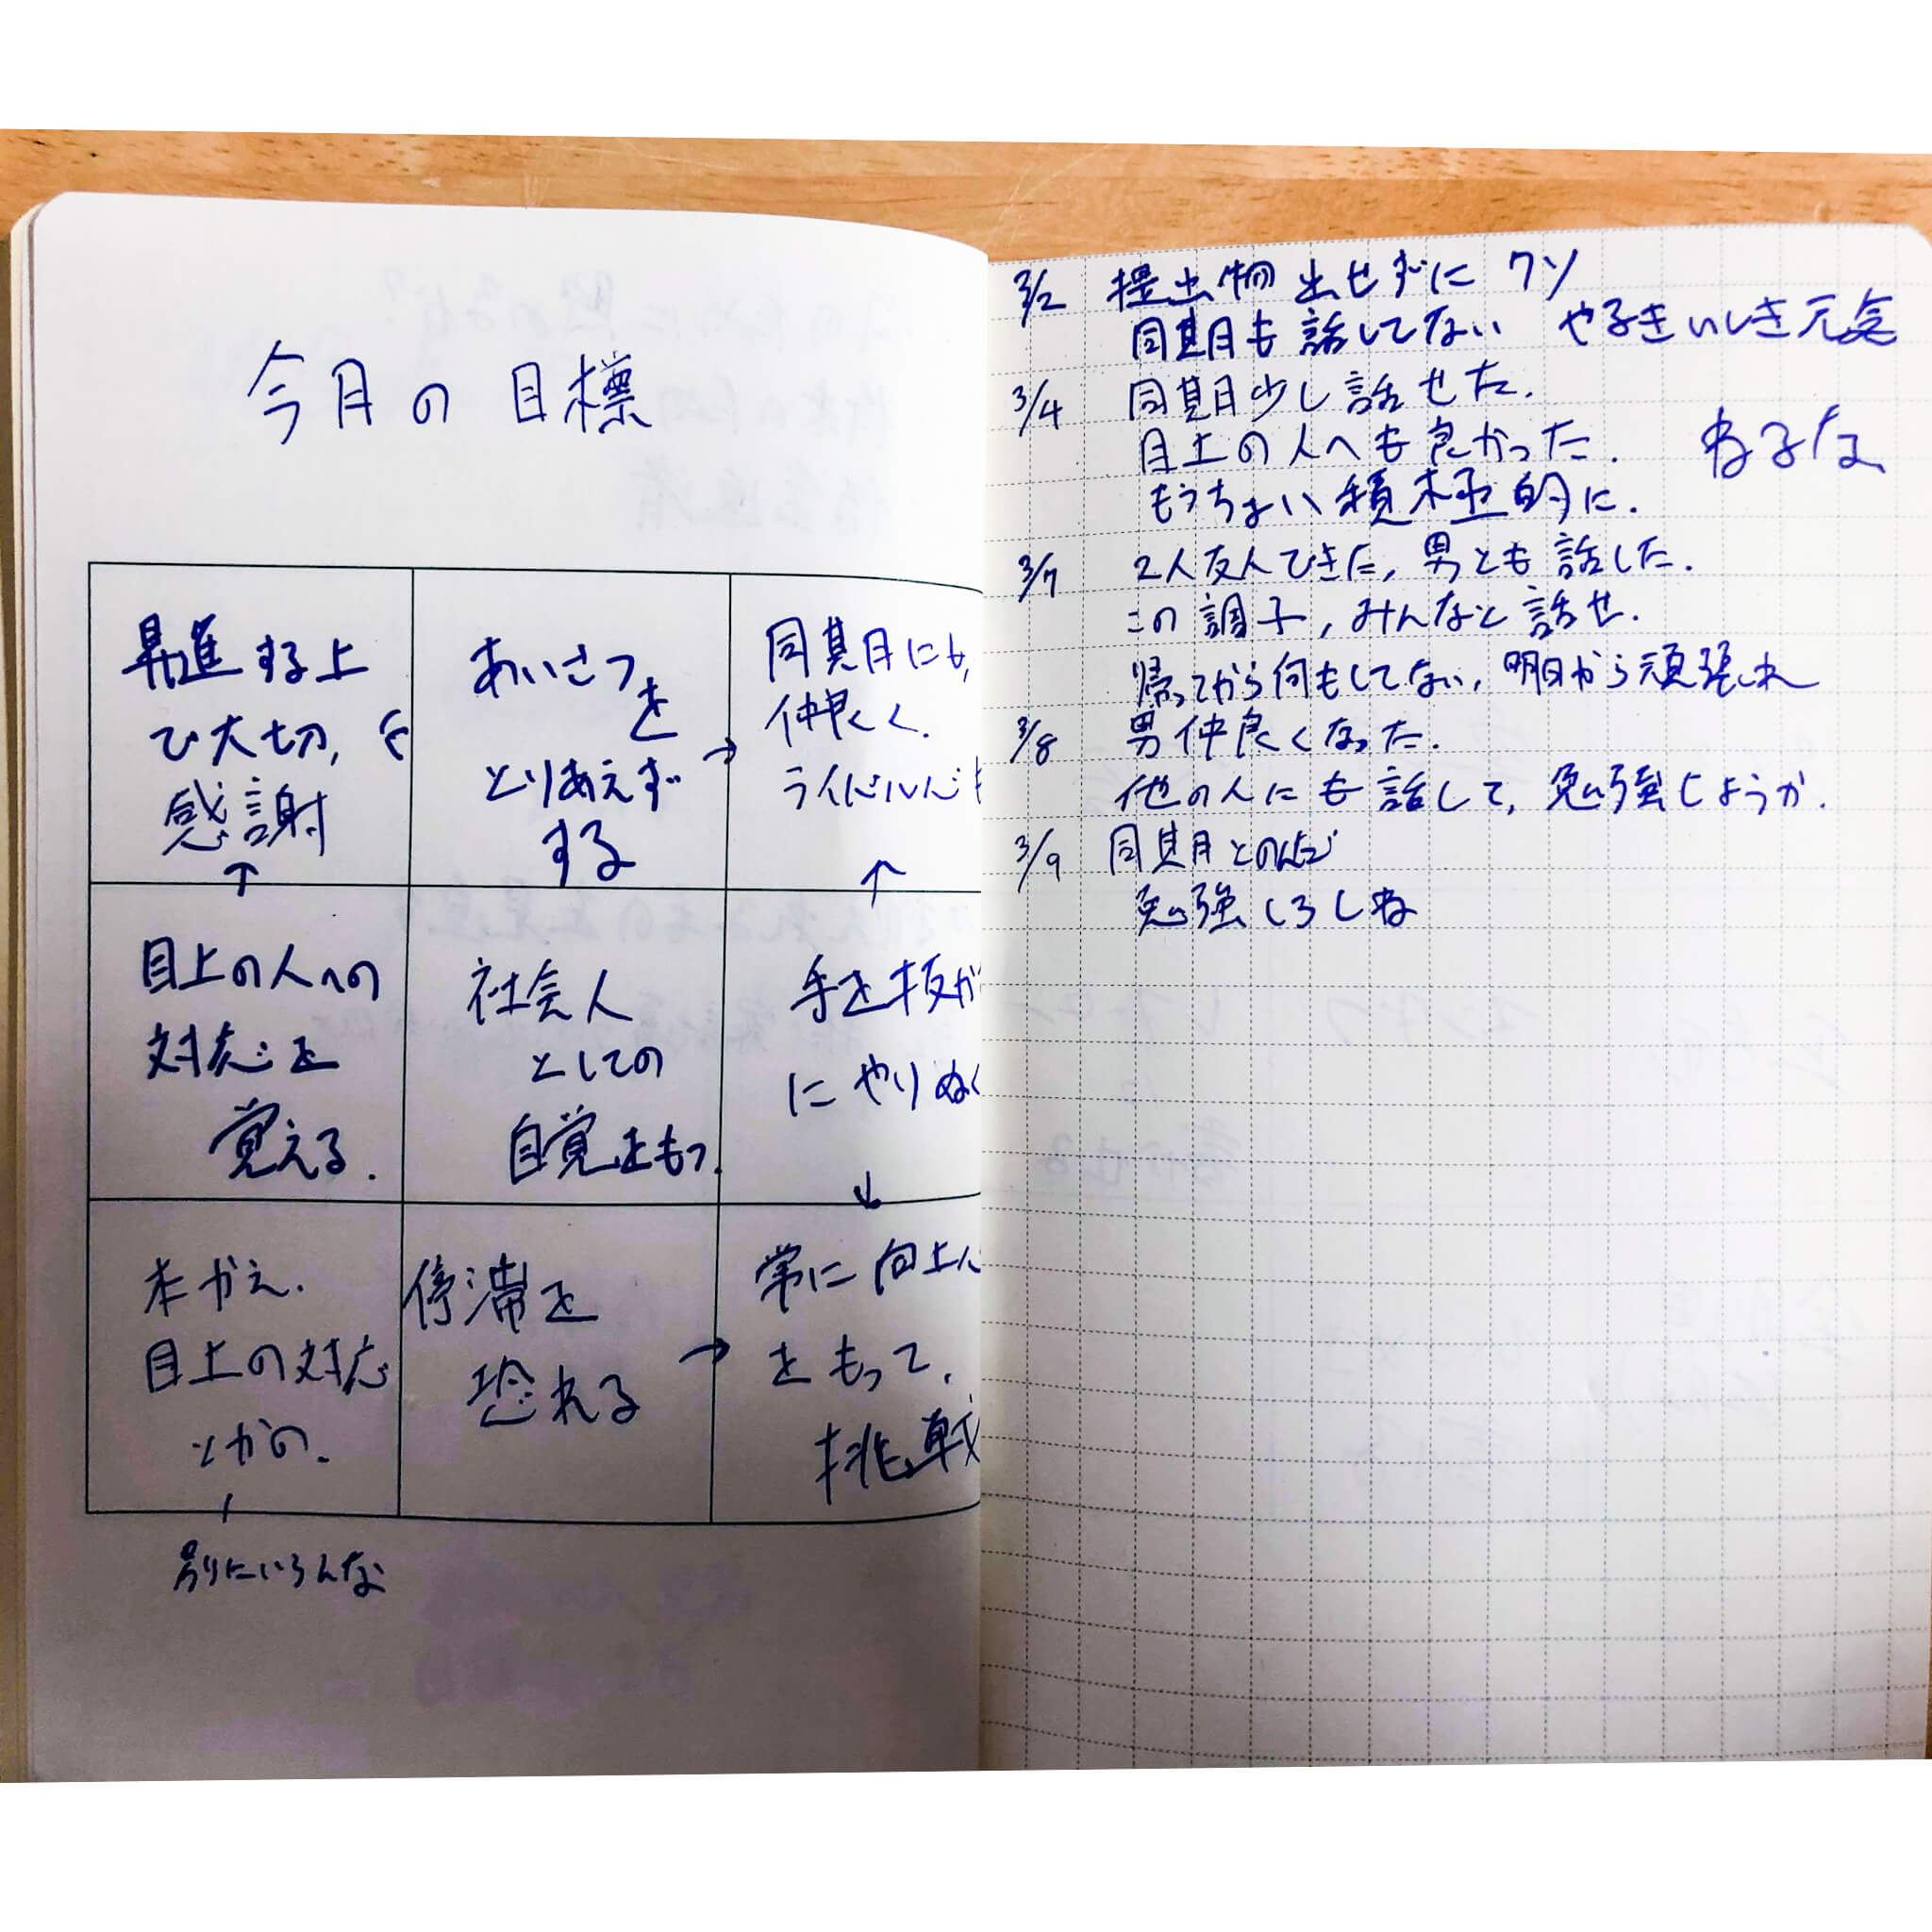 今月の目標
昇進する上
で大切,
感謝
あいさつ
を
とりあえず
する
同期にも,
仲良く.
ライバル心も
目上の人への
対応を
覚える.
社会人
としての
自覚をもつ.
手を抜か
にやりぬく
本かえ.
目上の対応
とかの.
別にいろんな
停滞を
恐れる
常に向上心
をもって,
挑戦
3/2 提出物出せずにクソ
同期も話してない やるきいしき元気
3/4 同期少し話せた.
目上の人へも良かった. ねるな
もうちょい積極的に.
3/7 2人友人できた, 男とも話した.
この調子, みんなと話せ.
帰ってから何もしてない, 明日から頑張れ
3/8 男仲良くなった.
他の人にも話して, 勉強しようか.
3/9 同期とのんだ
勉強しろしね